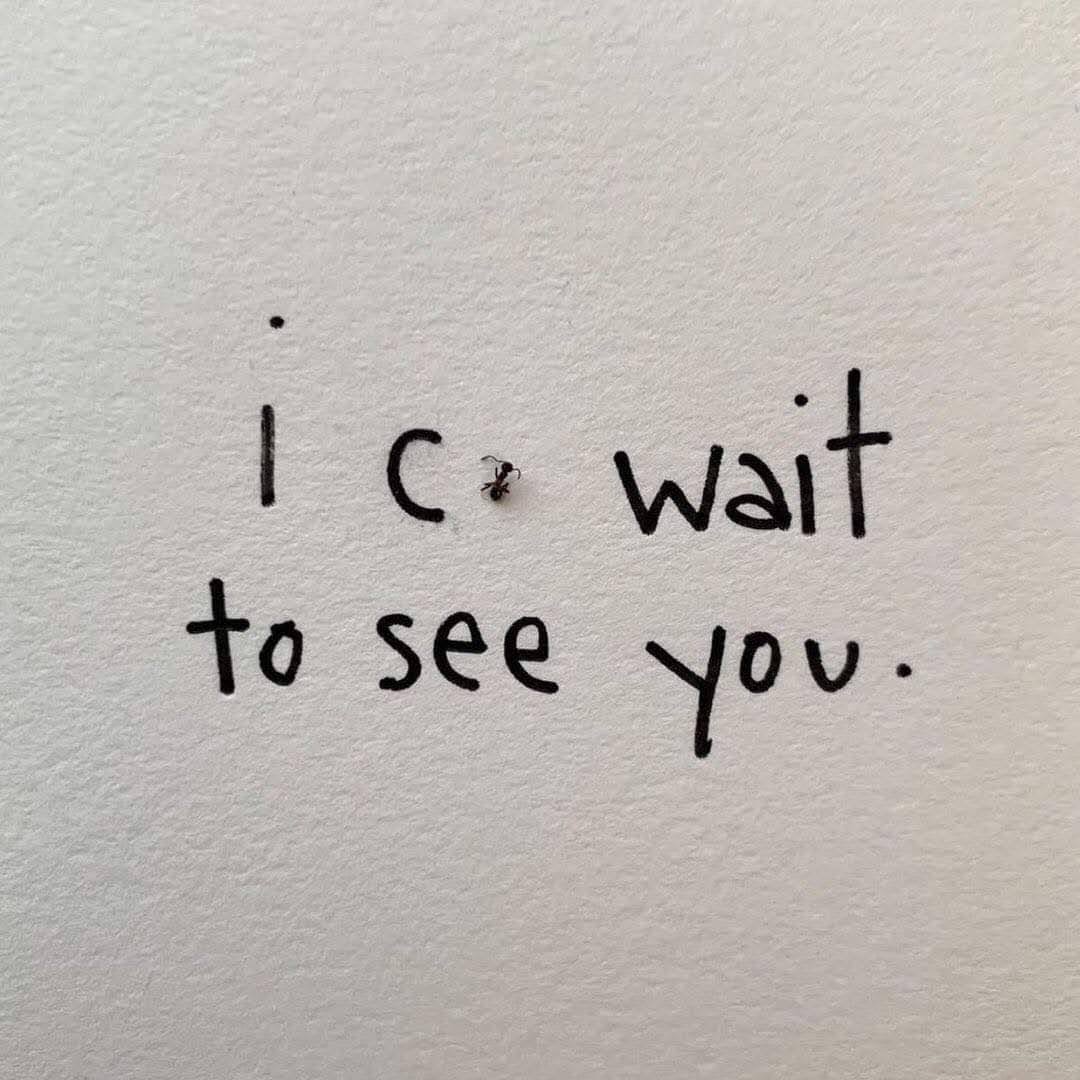 i c wait
to see you.